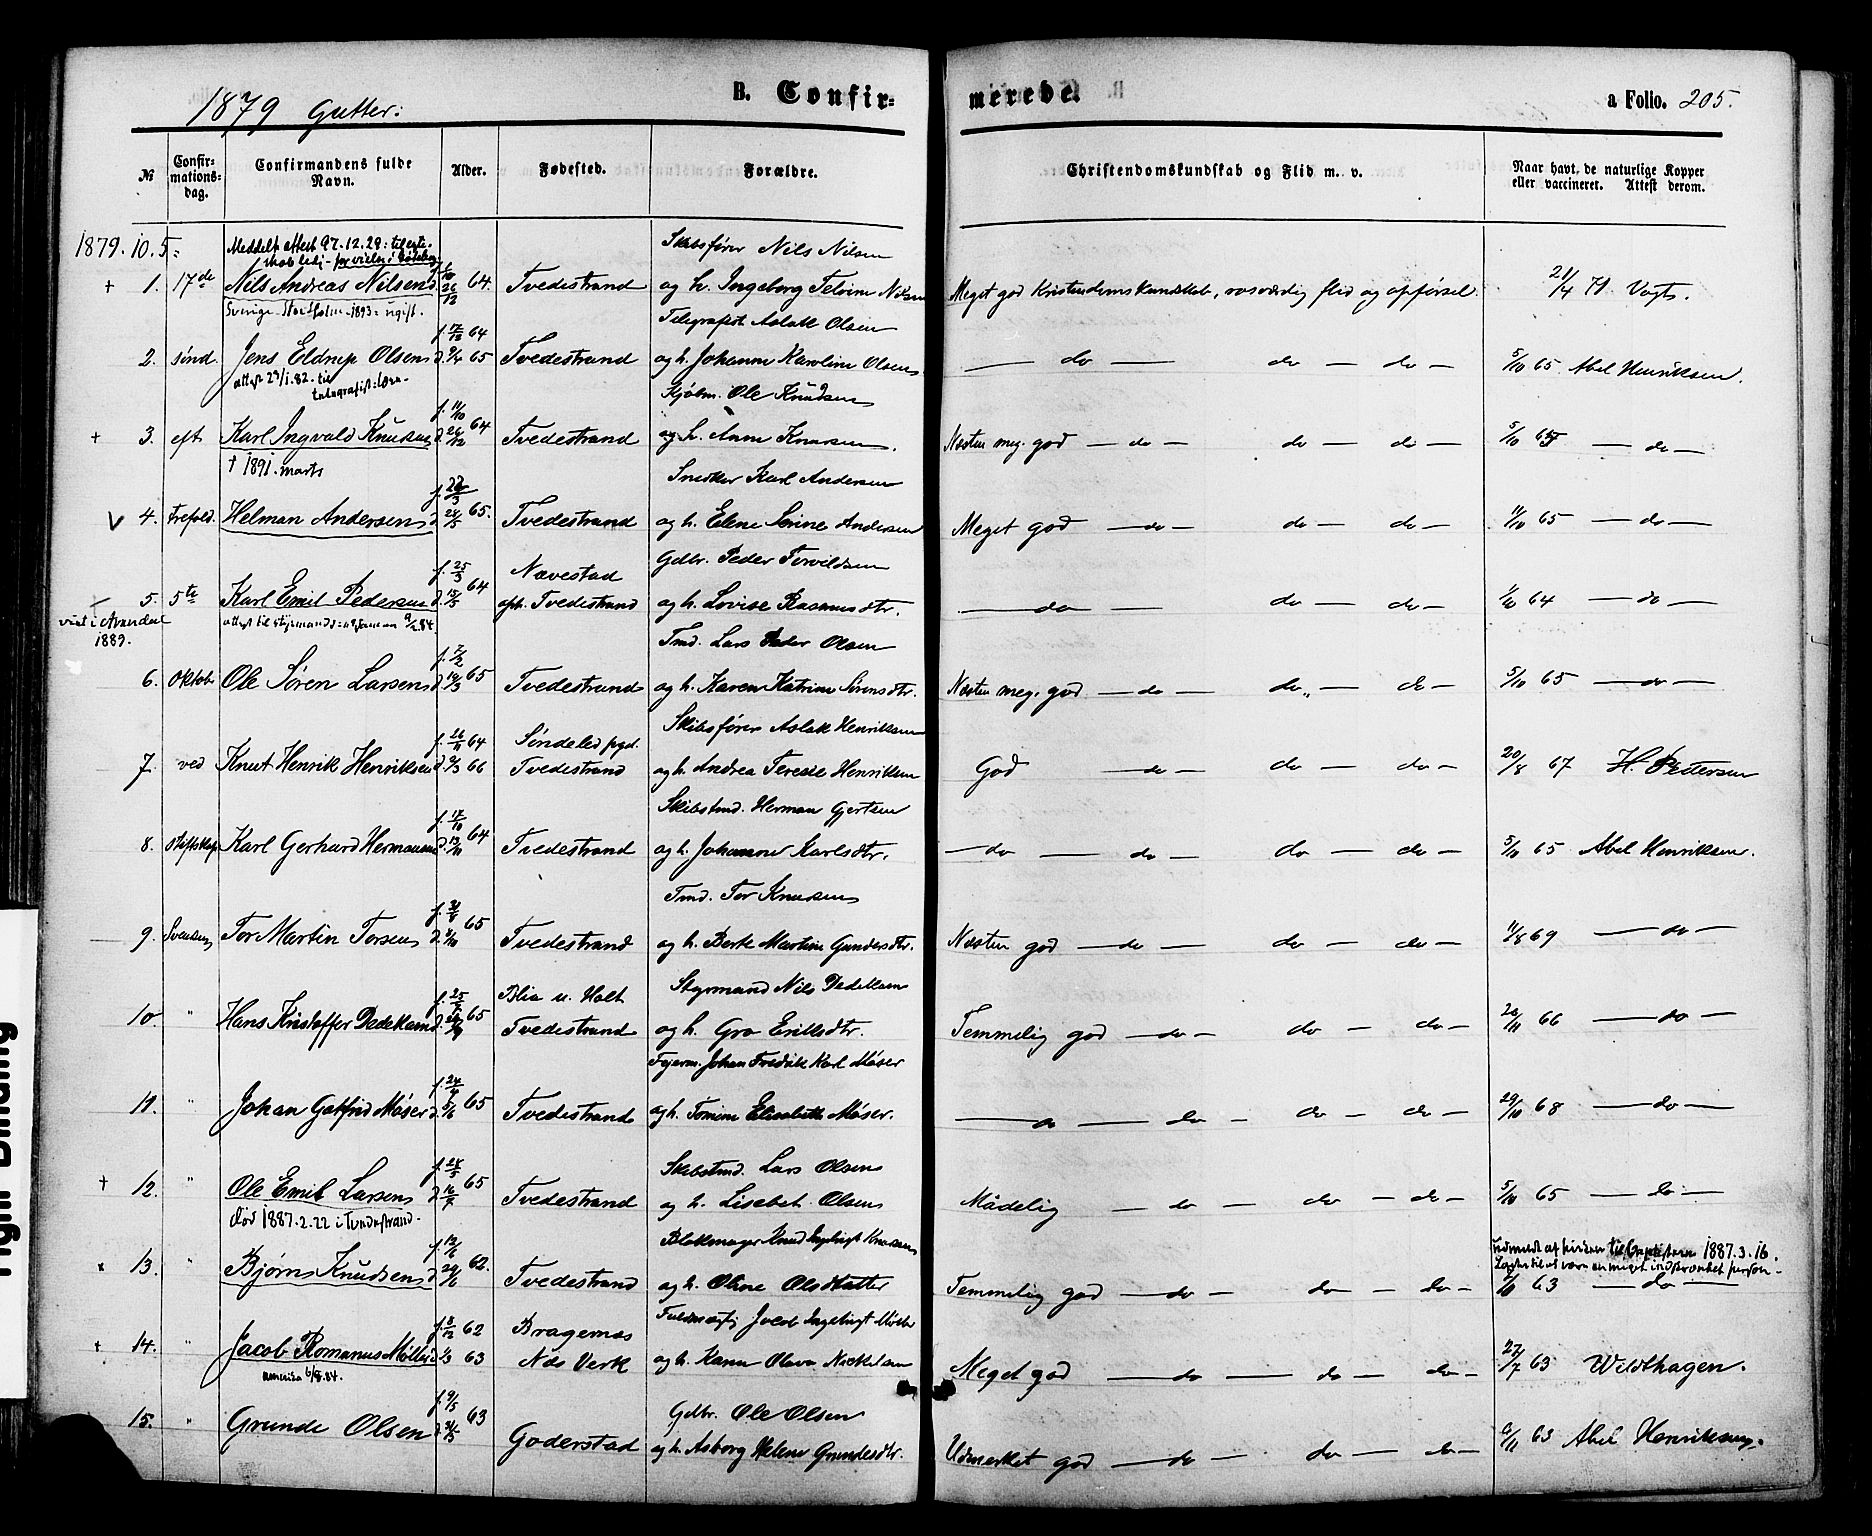 1879 Gutter:
B. Confirmerede.
a Folio. 205.
№ Confirmationsdag. Confirmandens fulde Navn. Alder. Fødested. Forældre. Christendomskundskab og Flid m. v. Naar havt, de naturlige Kopper eller vaccineret. Attest derom.
1879. 10. 5 =
Meddelt attest 97.12.29: til
Skibsfører Nils Nilsen
+ 1. 17de Nils Andreas Nilsen 64. Tvedestrand og h. Ingeborg Nilsen Meget god Kristendomskundskab, rosværdig flid og opførsel. 21/4 71 Vogt.
Sverige Stockholm-1893= ugift.
Telegrafist Aslak Olsen
2. sønd. Jens Eldrup Olsen f. 17/12 64 d. 9/4 65 Tvedestrand og h. Johanne Karoline Olsen — do — do — do — 5/10 65 Abel Henriksen.
attest 29/1.82. til telegrafist:
Kjøbm. Ole Knudsen
+ 3. eft Karl Ingvald Knudsen f. 11/10 d. 26/12 64 Tvedestrand og h. Anne Knudsen. Næsten meg. god — do — do — do — 5/10 65 — do —
† 1891. marts
Snedker Karl Andersen
V 4. trefold. Helman Andersen f. 22/3 d. 24/5 65. Tvedestrand og h. Elene Sørine Andersen Meget god — do — do — do — 11/10 65 — do —
Nævestad Gdbr. Peder Torvildsen
5. 5te Karl Emil Pedersen f. 25/3 d. 15/5 64 oph. Tvedestrand og h. Lovise Rasmusdtr. — do — do — do — 1/10 64 — do —
viet i Arendal 1889.
Tmd. Lars Peder Olsen
6. Oktob. Ole Søren Larsen f. 7/2 d. 19/3 65 Tvedestrand og h. Karen Katrine Sørensdtr. Næsten meg. god — do — do — do — 5/10 65 — do —
Søndeled pgd. Skibsfører Aslak Henriksen
7. ved Knut Henrik Henriksen f. 26/11 64 d. 9/3 66 Tvedestrand og h. Andrea Terese Henriksen God — do — do — do — 20/8 67 H. Pedersen
Skibstmd. Herman Gjertsen
8. Karl Gerhard Hermansen f. 17/10 d. 13/11 64 Tvedestrand og h. Johanne Karlsdtr. — do — do — do — do — 5/10 65 Abel Henriksen.
Tmd. Tor Knudsen
9. Svensen Tor Martin Torsen 65 Tvedestrand og h. Berte Martine Gundersdtr. Næsten god — do — do — do — 11/8 69 — do —
Blia u. Holt Styrmand Nils Dedekam
10. " Hans Kristoffer Dedekam 65 Tvedestrand og h. Gro Eriksdtr. Temmelig god — do — do — do — 20/11 66 — do —
Johan Fredrik Karl Møser
11. " Johan Gotfrid Møser f. 24/4 d. 5/6 65 Tvedestrand og h. Tomine Elisabeth Møser. — do — do — do — do — 29/10 68 — do —
Skibstmd. Lars Olsen
† 12. " Ole Emil Larsen f. 24/5 d. 16/7 65 Tvedestrand og h. Lisebet Olsen Mådelig — do — do — do — 5/10 65 — do —
død 1887.2.22 i Tvedestrand.
Blokmager Knud Ingebrigt Knudsen
Udmeldt af kirken til Baptisterne 1887.3.16.
x 13. " Bjørn Knudsen 62. Tvedestrand og h. Oline Olsdatter Temmelig god — do — do — do — 63 — do —
Bragernæs Fuldmægtig Jacob Ingebrigt Møller
+ 14. " Jacob Romanus Møller f. 8/12 62 d. 1/3 63 Næs Verk og h. Karen Olava Nickelsen Meget god — do — do — do — 27/7 63 Wildthagen.
Amerika 6/8.84.
Gdbr. Ole Olsen
15. " Grunde Olsen 63 Goderstad og h. Asborg Helene Grundesdtr. Udmerket god — do — do — do — 63 Abel Henriksen.